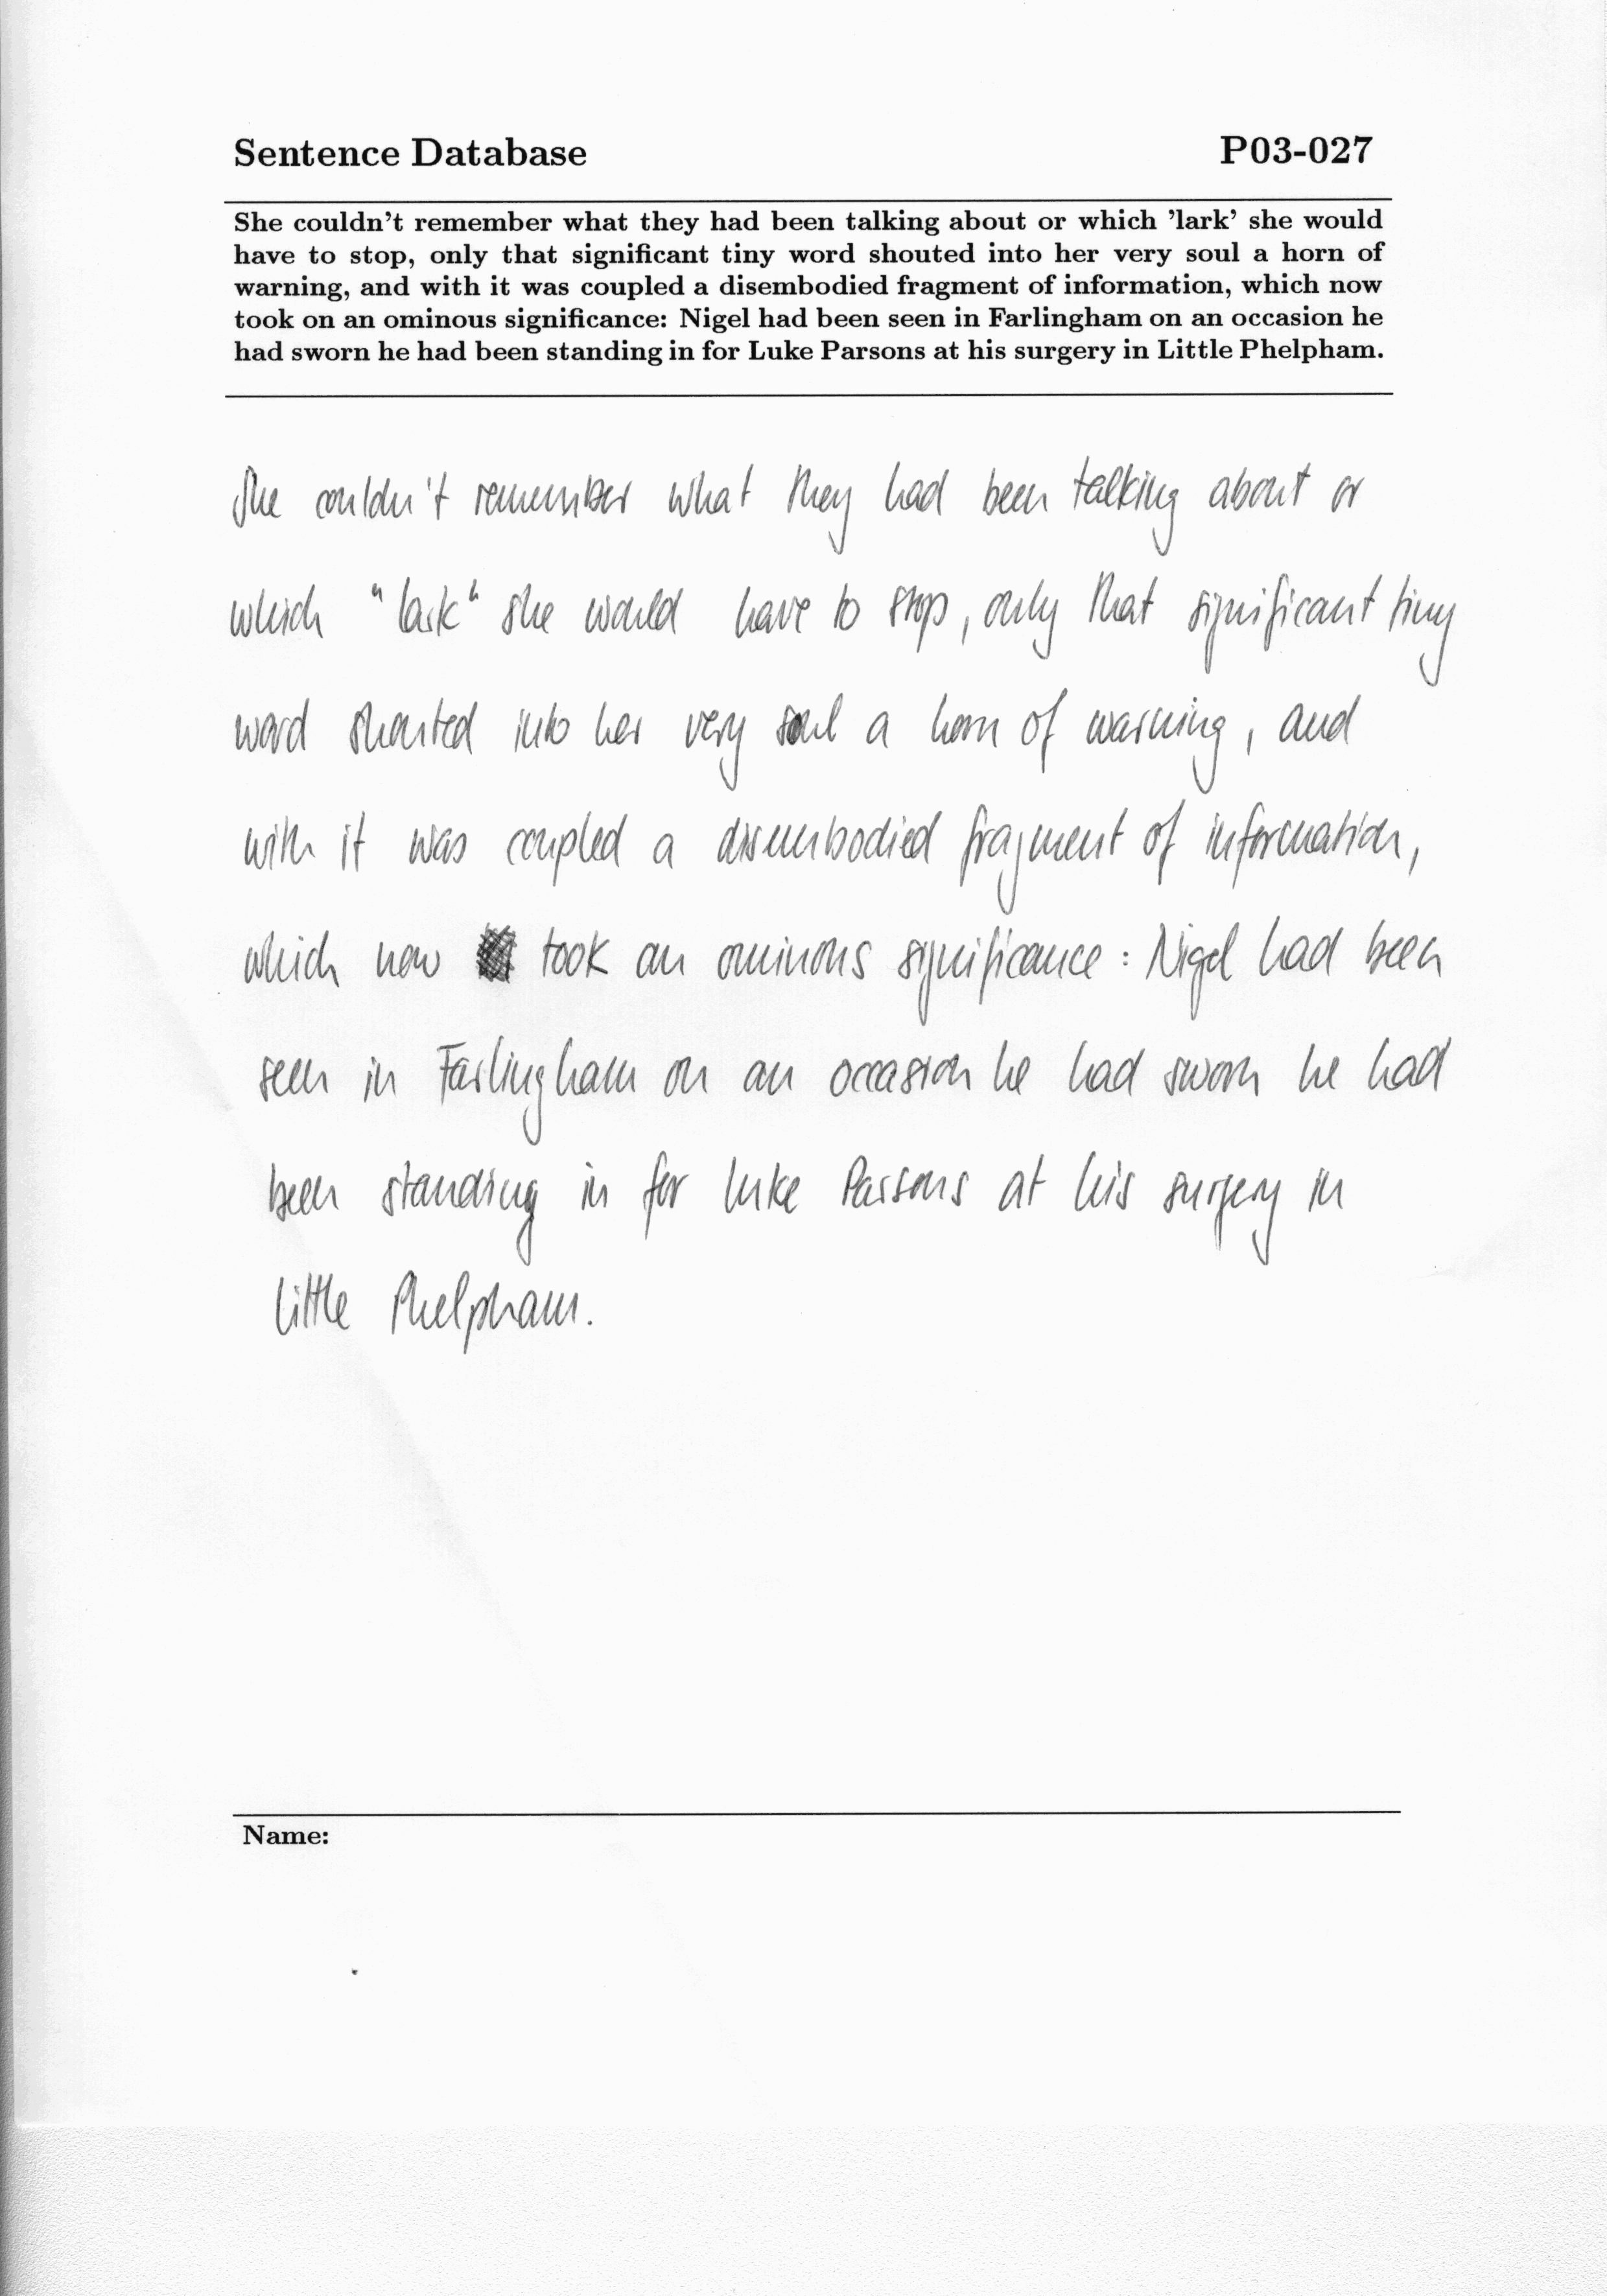 Sentence Database P03-027
She couldn't remember what they had been talking about or which 'lark' she would
have to stop, only that significant tiny word shouted into her very soul a horn of
warning, and with it was coupled a disembodied fragment of information, which now
took on an ominous significance: Nigel had been seen in Farlingham on an occasion he
had sworn he had been standing in for Luke Parsons at his surgery in Little Phelpham.
She couldn't remember what they had been talking about or
which "lark" she would have to stop, only that significant tiny
word shouted into her very soul a horn of warning, and
with it was coupled a disembodied fragment of information,
which now took an ominous significance: Nigel had been
seen in Farlingham on an occasion he had sworn he had
been standing in for Luke Parsons at his surgery in
Little Phelpham.
Name: